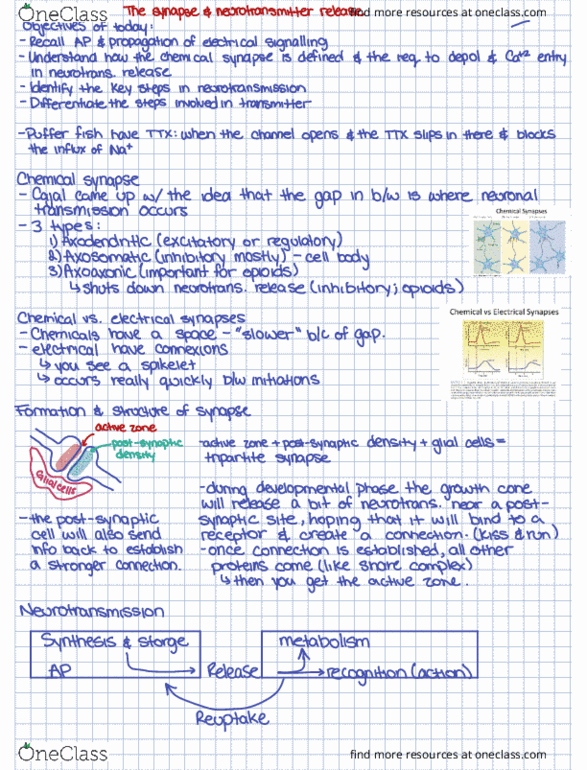 OneClass
The synapse & neurotransmitter release
find more resources at oneclass.com
Objectives of today:
- Recall AP & propagation of electrical signalling
- Understand how the chemical synapse is defined & the req. to depol & Ca+2 entry
in neurotrans. release
- Identify the key steps in neurotransmission
- Differentiate the steps involved in transmitter
- Puffer fish have TTX: when the channel opens & the TTX slips in there & blocks
the influx of Na+
Chemical synapse
- Cajal came up w/ the idea that the gap in b/w is where neuronal
transmission occurs
- 3 types:
1) Axodendritic (excitatory or regulatory)
2) Axosomatic (inhibitory mostly) - cell body
3) Axoaxonic (important for opioids)
↳ shuts down neurotrans. release (inhibitory; opioids)
Chemical Synapses
Chemical vs. electrical synapses
- Chemicals have a space - "slower" b/c of gap.
- electrical have connexions
↳ you see a spikelet
↳ occurs really quickly b/w
Chemical vs Electrical Synapses
Formation & structure of synapse
active zone
post-synaptic
density
Glial cells
- active zone + post-synaptic density + glial cells =
tripartite synapse
- during developmental phase the growth cone
will release a bit of neurotrans. near a post-
synaptic site, hoping that it will bind to a
receptor & create a connection. (kiss & run)
- once connection is established, all other
proteins come (like snare complex)
↳ then you get the active zone.
- the post-synaptic
cell will also send
info back to establish
a stronger connection.
Neurotransmission
Synthesis & storge
metabolism
AP
Release
recognition (action)
Reuptake
OneClass
find more resources at oneclass.com